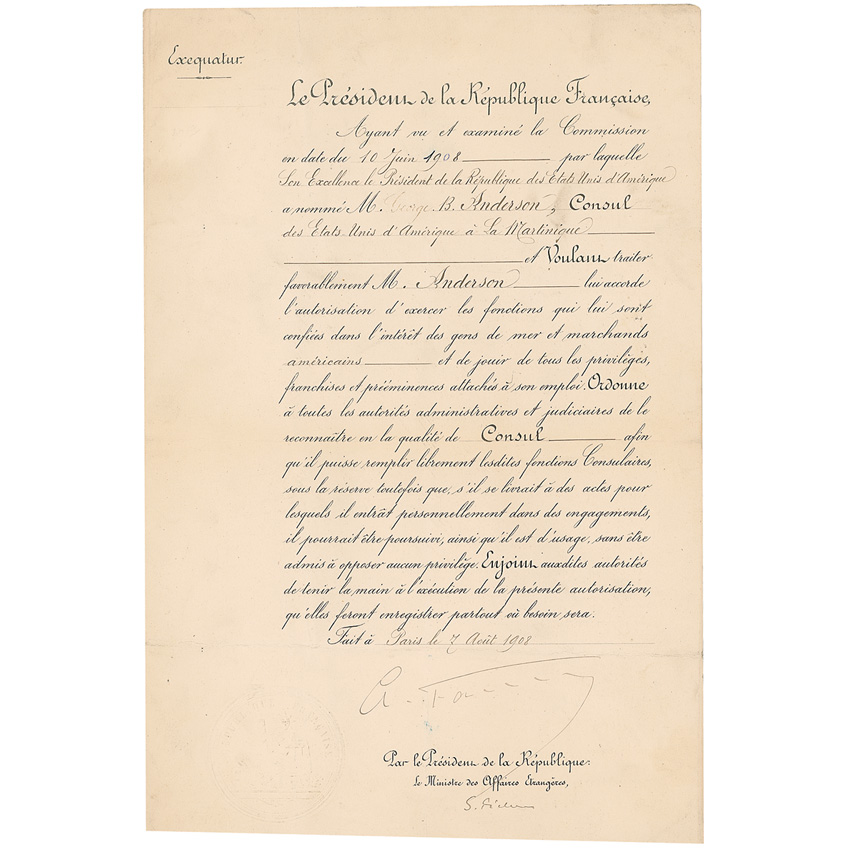 Exequatur.
Le Président de la République Française,
Ayant vu et examiné la Commission
en date du 10 Juin 1908 par laquelle
Son Excellence le Président de la République des Etats Unis d'Amérique
a nommé M. George B. Anderson, Consul
des Etats Unis d'Amérique à La Martinique
et Voulant traiter
favorablement M. Anderson lui accorde
l'autorisation d'exercer les fonctions qui lui sont
confiées dans l'intérêt des gens de mer et marchands
américains et de jouir de tous les privilèges,
franchises et prééminences attachés à son emploi. Ordonne
à toutes les autorités administratives et judiciaires de le
reconnaître en la qualité de Consul afin
qu'il puisse remplir librement lesdites fonctions Consulaires,
sous la réserve toutefois que, s'il se livrait à des actes pour
lesquels il entrât personnellement dans des engagements,
il pourrait être poursuivi, ainsi qu'il est d'usage, sans être
admis à opposer aucun privilège. Enjoint auxdites autorités
de tenir la main à l'exécution de la présente autorisation,
qu'elles feront enregistrer partout où besoin sera.
Fait à Paris le 7 Août 1908
Par le Président de la République:
Le Ministre des Affaires Etrangères,